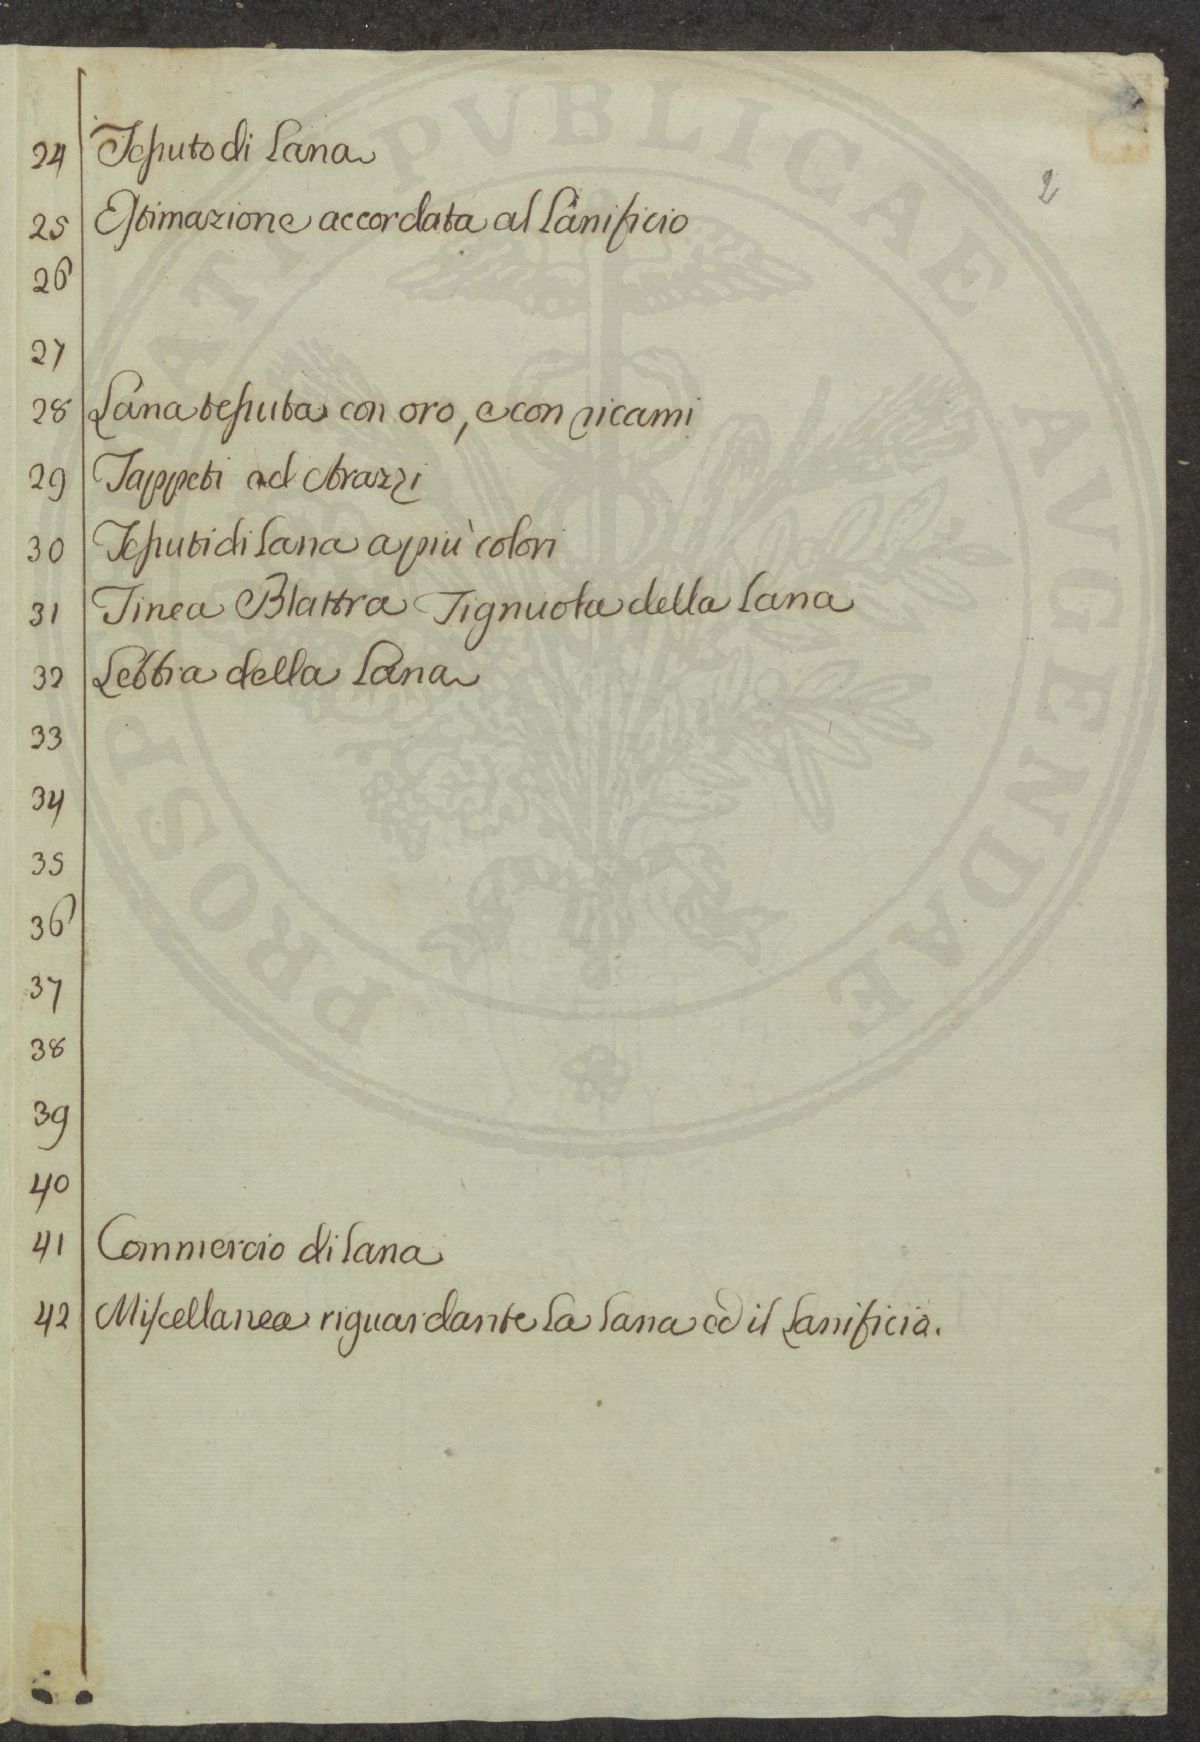 2
24 Teſsuto di Lana
25 Estimazione accordata al Lanificio
26
27
28 Lana teſsuta con oro, e con ricami
29 Tappeti ed Arazzi
30 Teſsuti di Lana a più colori
31 Tinea Blattra Tignuola della Lana
32 Lebbra della Lana
33
34
35
36
37
38
39
40
41 Commercio di Lana
42 Miſcellanea riguardante La Lana ed il Lanificio.
PROSPERITATI PVBLICAE AVGENDAE